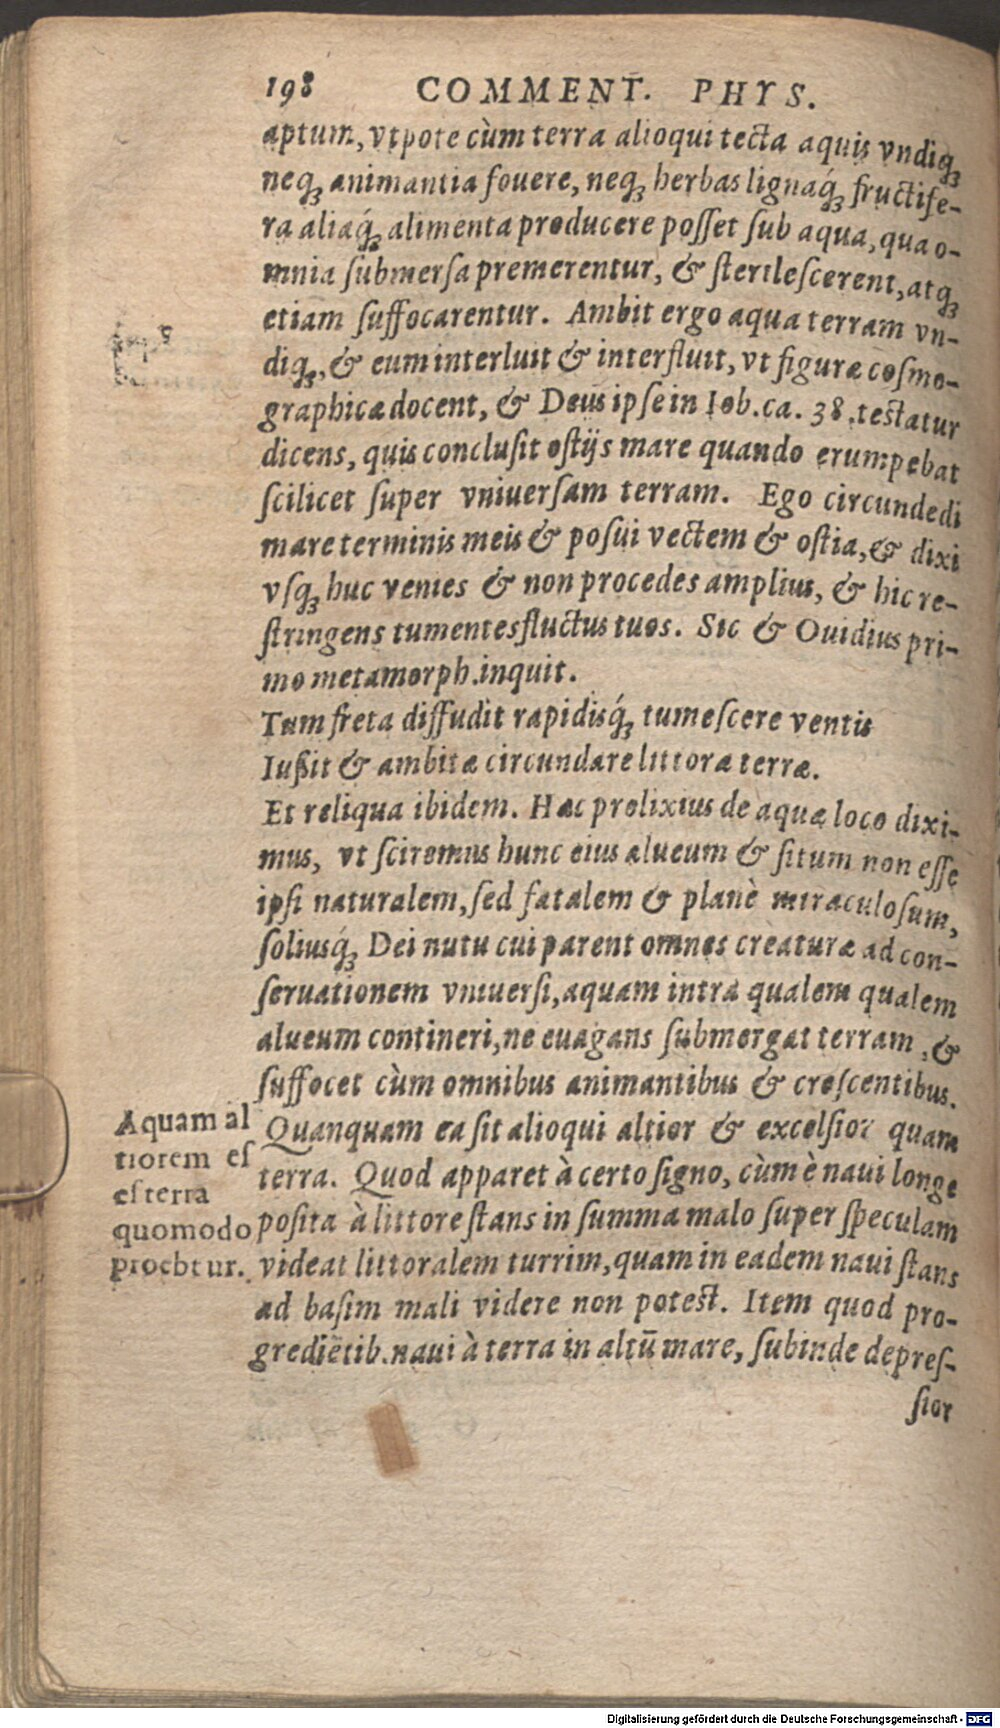 198 COMMENT. PHYS.
aptum, vtpote cùm terra alioqui tecta aquis vndiq;
neq; animantia fouere, neq; herbas lignaq́; fructife-
ra aliaq́; alimenta producere posset sub aqua, qua o-
mnia submersa premerentur, & sterilescerent, atq;
etiam suffocarentur. Ambit ergo aqua terram vn-
diq;, & eum interluit & interfluit, vt figuræ cosmo-
graphicæ docent, & Deus ipse in Iob. ca. 38. testatur
dicens, quis conclusit ostijs mare quando erumpebat
scilicet super vniuersam terram. Ego circundedi
mare terminis meis & posui vectem & ostia, & dixi
vsq; huc venies & non procedes amplius, & hic re-
stringens tumentes fluctus tuos. Sic & Ouidius pri-
mo metamorph. inquit.
Tum freta diffudit rapidisq́; tumescere ventis
Iußit & ambitæ circundare littora terræ.
Et reliqua ibidem. Hæc prolixius de aquæ loco dixi-
mus, vt sciremus hunc eius alueum & situm non esse
ipsi naturalem, sed fatalem & planè miraculosum,
soliusq́; Dei nutu cui parent omnes creaturæ ad con-
seruationem vniuersi, aquam intra qualem qualem
alueum contineri, ne euagans submergat terram, &
suffocet cùm omnibus animantibus & crescentibus.
Quanquam ea sit alioqui altior & excelsior quam
terra. Quod apparet à certo signo, cùm è naui longe
posita à littore stans in summa malo super speculam
videat littoralem turrim, quam in eadem naui stans
ad basim mali videre non potest. Item quod pro-
grediẽtib. naui à terra in altũ mare, subinde depres-
sior
Aquam al
tiorem es
es terra
quomodo
proebtur.
Digitalisierung gefördert durch die Deutsche Forschungsgemeinschaft - DFG